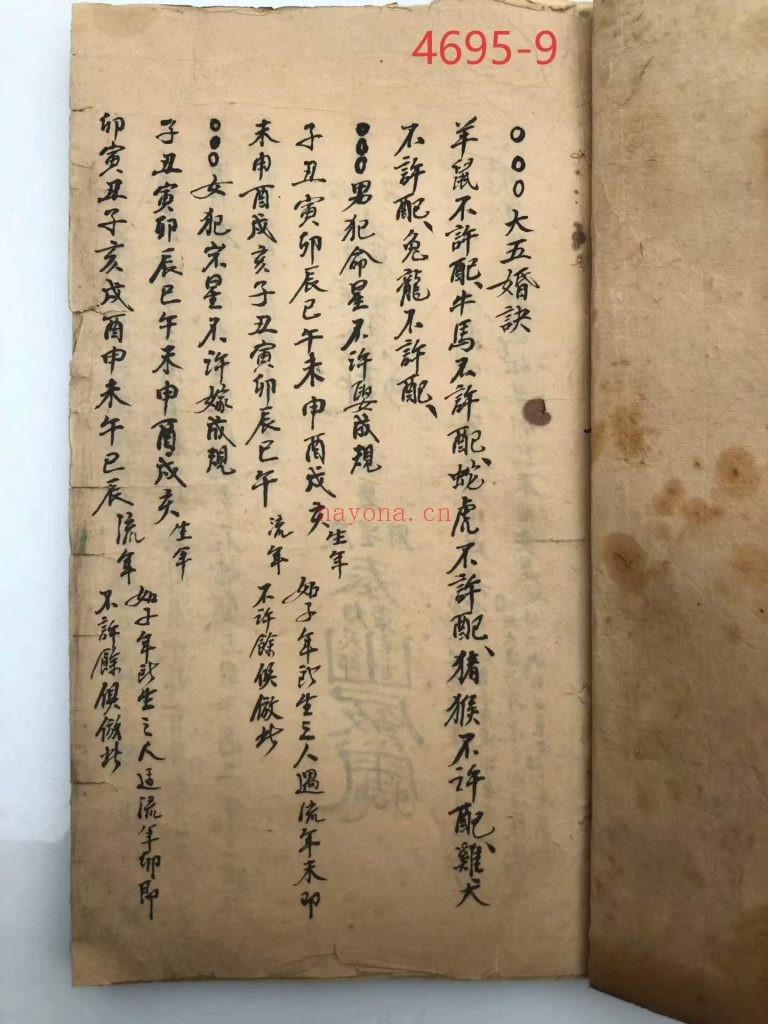 4695-9
○○○大五婚訣
羊鼠不許配、牛馬不許配、蛇虎不許配、猪猴不許配、雞犬
不許配、兔龍不許配、
○○○男犯命星不許娶成規
子丑寅卯辰巳午未申酉戌亥生年 如子年所生之人遇流年未即
未申酉戌亥子丑寅卯辰巳午流年 不许餘俱倣此
○○○女犯宋星不许嫁成規
子丑寅卯辰巳午未申酉戌亥生年 如子年所生之人廷流年卯即
卯寅丑子亥戌酉申未午巳辰流年 不許餘俱倣此
nayona.cn